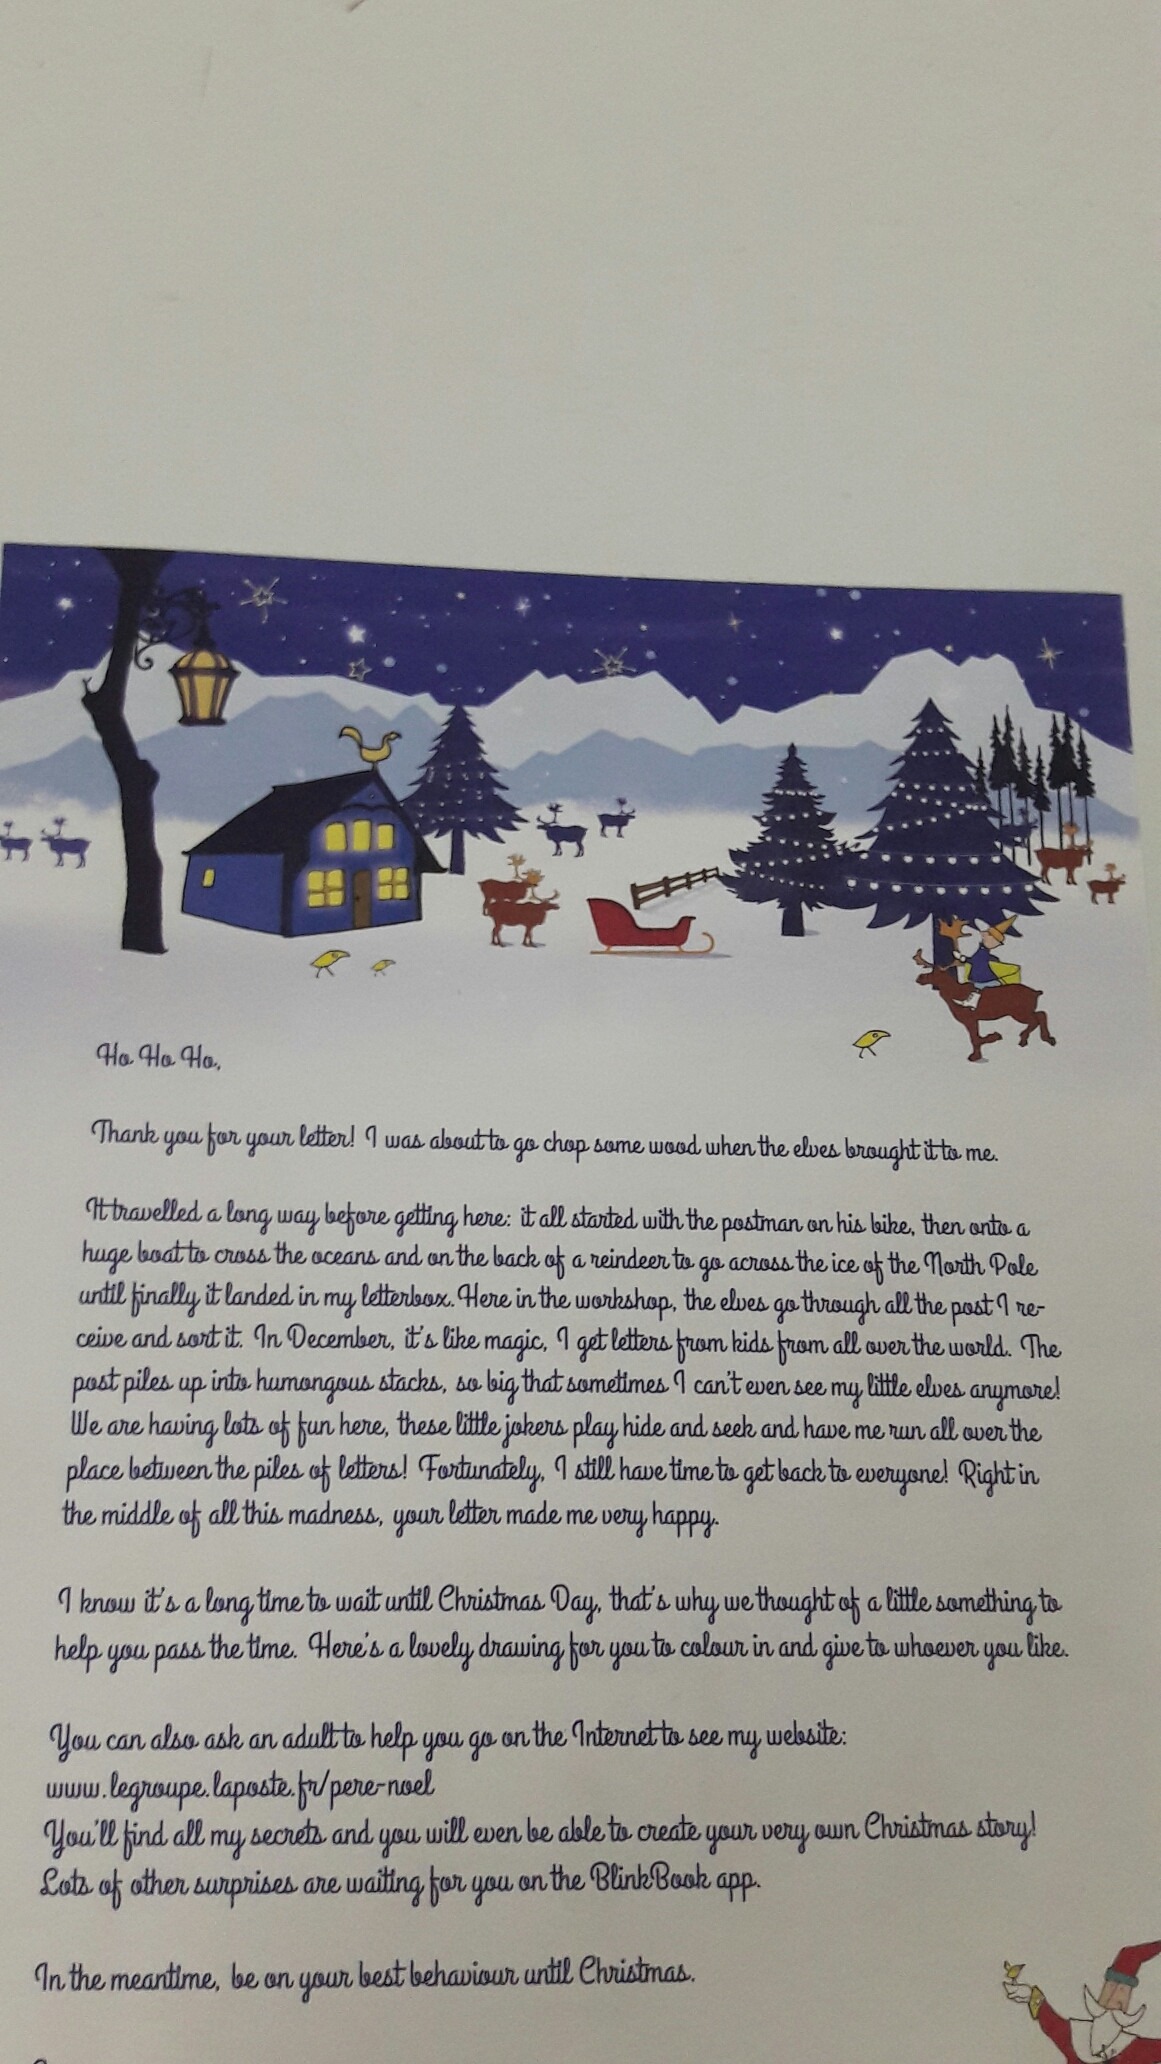 Ho Ho Ho,
Thank you for your letter! I was about to go chop some wood when the elves brought it to me.
It travelled a long way before getting here: it all started with the postman on his bike, then onto a
huge boat to cross the oceans and on the back of a reindeer to go across the ice of the North Pole
until finally it landed in my letterbox. Here in the workshop, the elves go through all the post I re-
ceive and sort it. In December, it's like magic, I get letters from kids from all over the world. The
post piles up into humongous stacks, so big that sometimes I can't even see my little elves anymore!
We are having lots of fun here, these little jokers play hide and seek and have me run all over the
place between the piles of letters! Fortunately, I still have time to get back to everyone! Right in
the middle of all this madness, your letter made me very happy.
I know it's a long time to wait until Christmas Day, that's why we thought of a little something to
help you pass the time. Here's a lovely drawing for you to colour in and give to whoever you like.
You can also ask an adult to help you go on the Internet to see my website:
www.legroupe.laposte.fr/pere-noel
You'll find all my secrets and you will even be able to create your very own Christmas story!
Lots of other surprises are waiting for you on the BlinkBook app.
In the meantime, be on your best behaviour until Christmas.